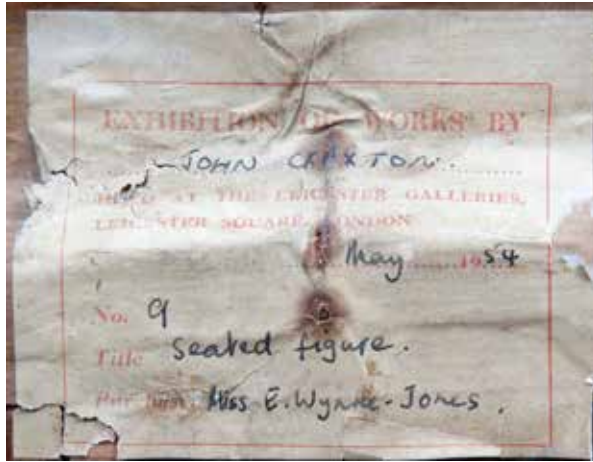 EXHIBITION OF WORKS BY
JOHN CRAXTON.
HELD AT THE LEICESTER GALLERIES,
LEICESTER SQUARE, LONDON
May 1954
No. 9
Title Seated figure.
Miss E. Wynne-Jones.